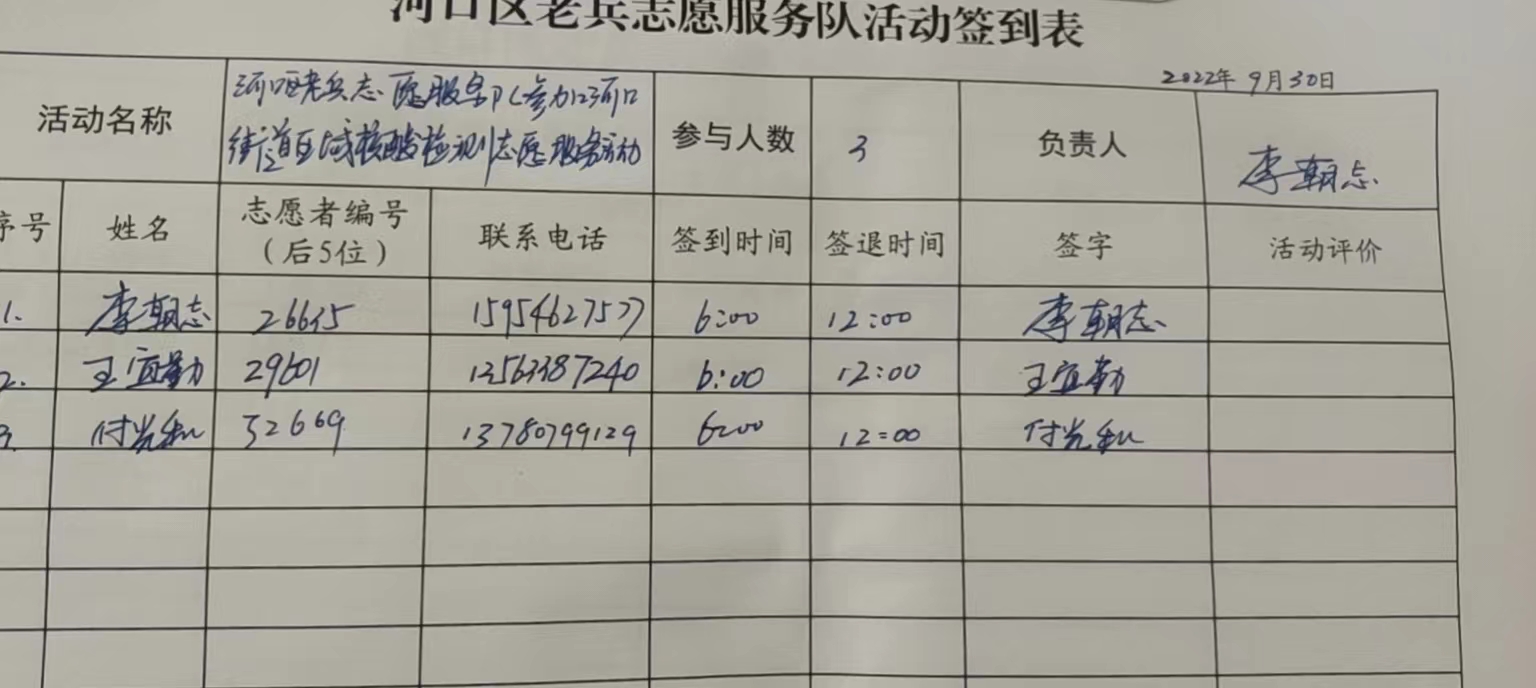 河口区老兵志愿服务队活动签到表
2022年 9月30日
活动名称 河口区老兵志愿服务队参加河口 参与人数 3 负责人 李朝志
街道区域核酸检测志愿服务活动
序号 姓名 志愿者编号 联系电话 签到时间 签退时间 签字 活动评价
（后5位）
1. 李朝志 26635 15954627577 6:00 12:00 李朝志
2. 王宜勤 29601 13563387240 6:00 12:00 王宜勤
3. 付光和 32669 13780799129 6:00 12:00 付光和